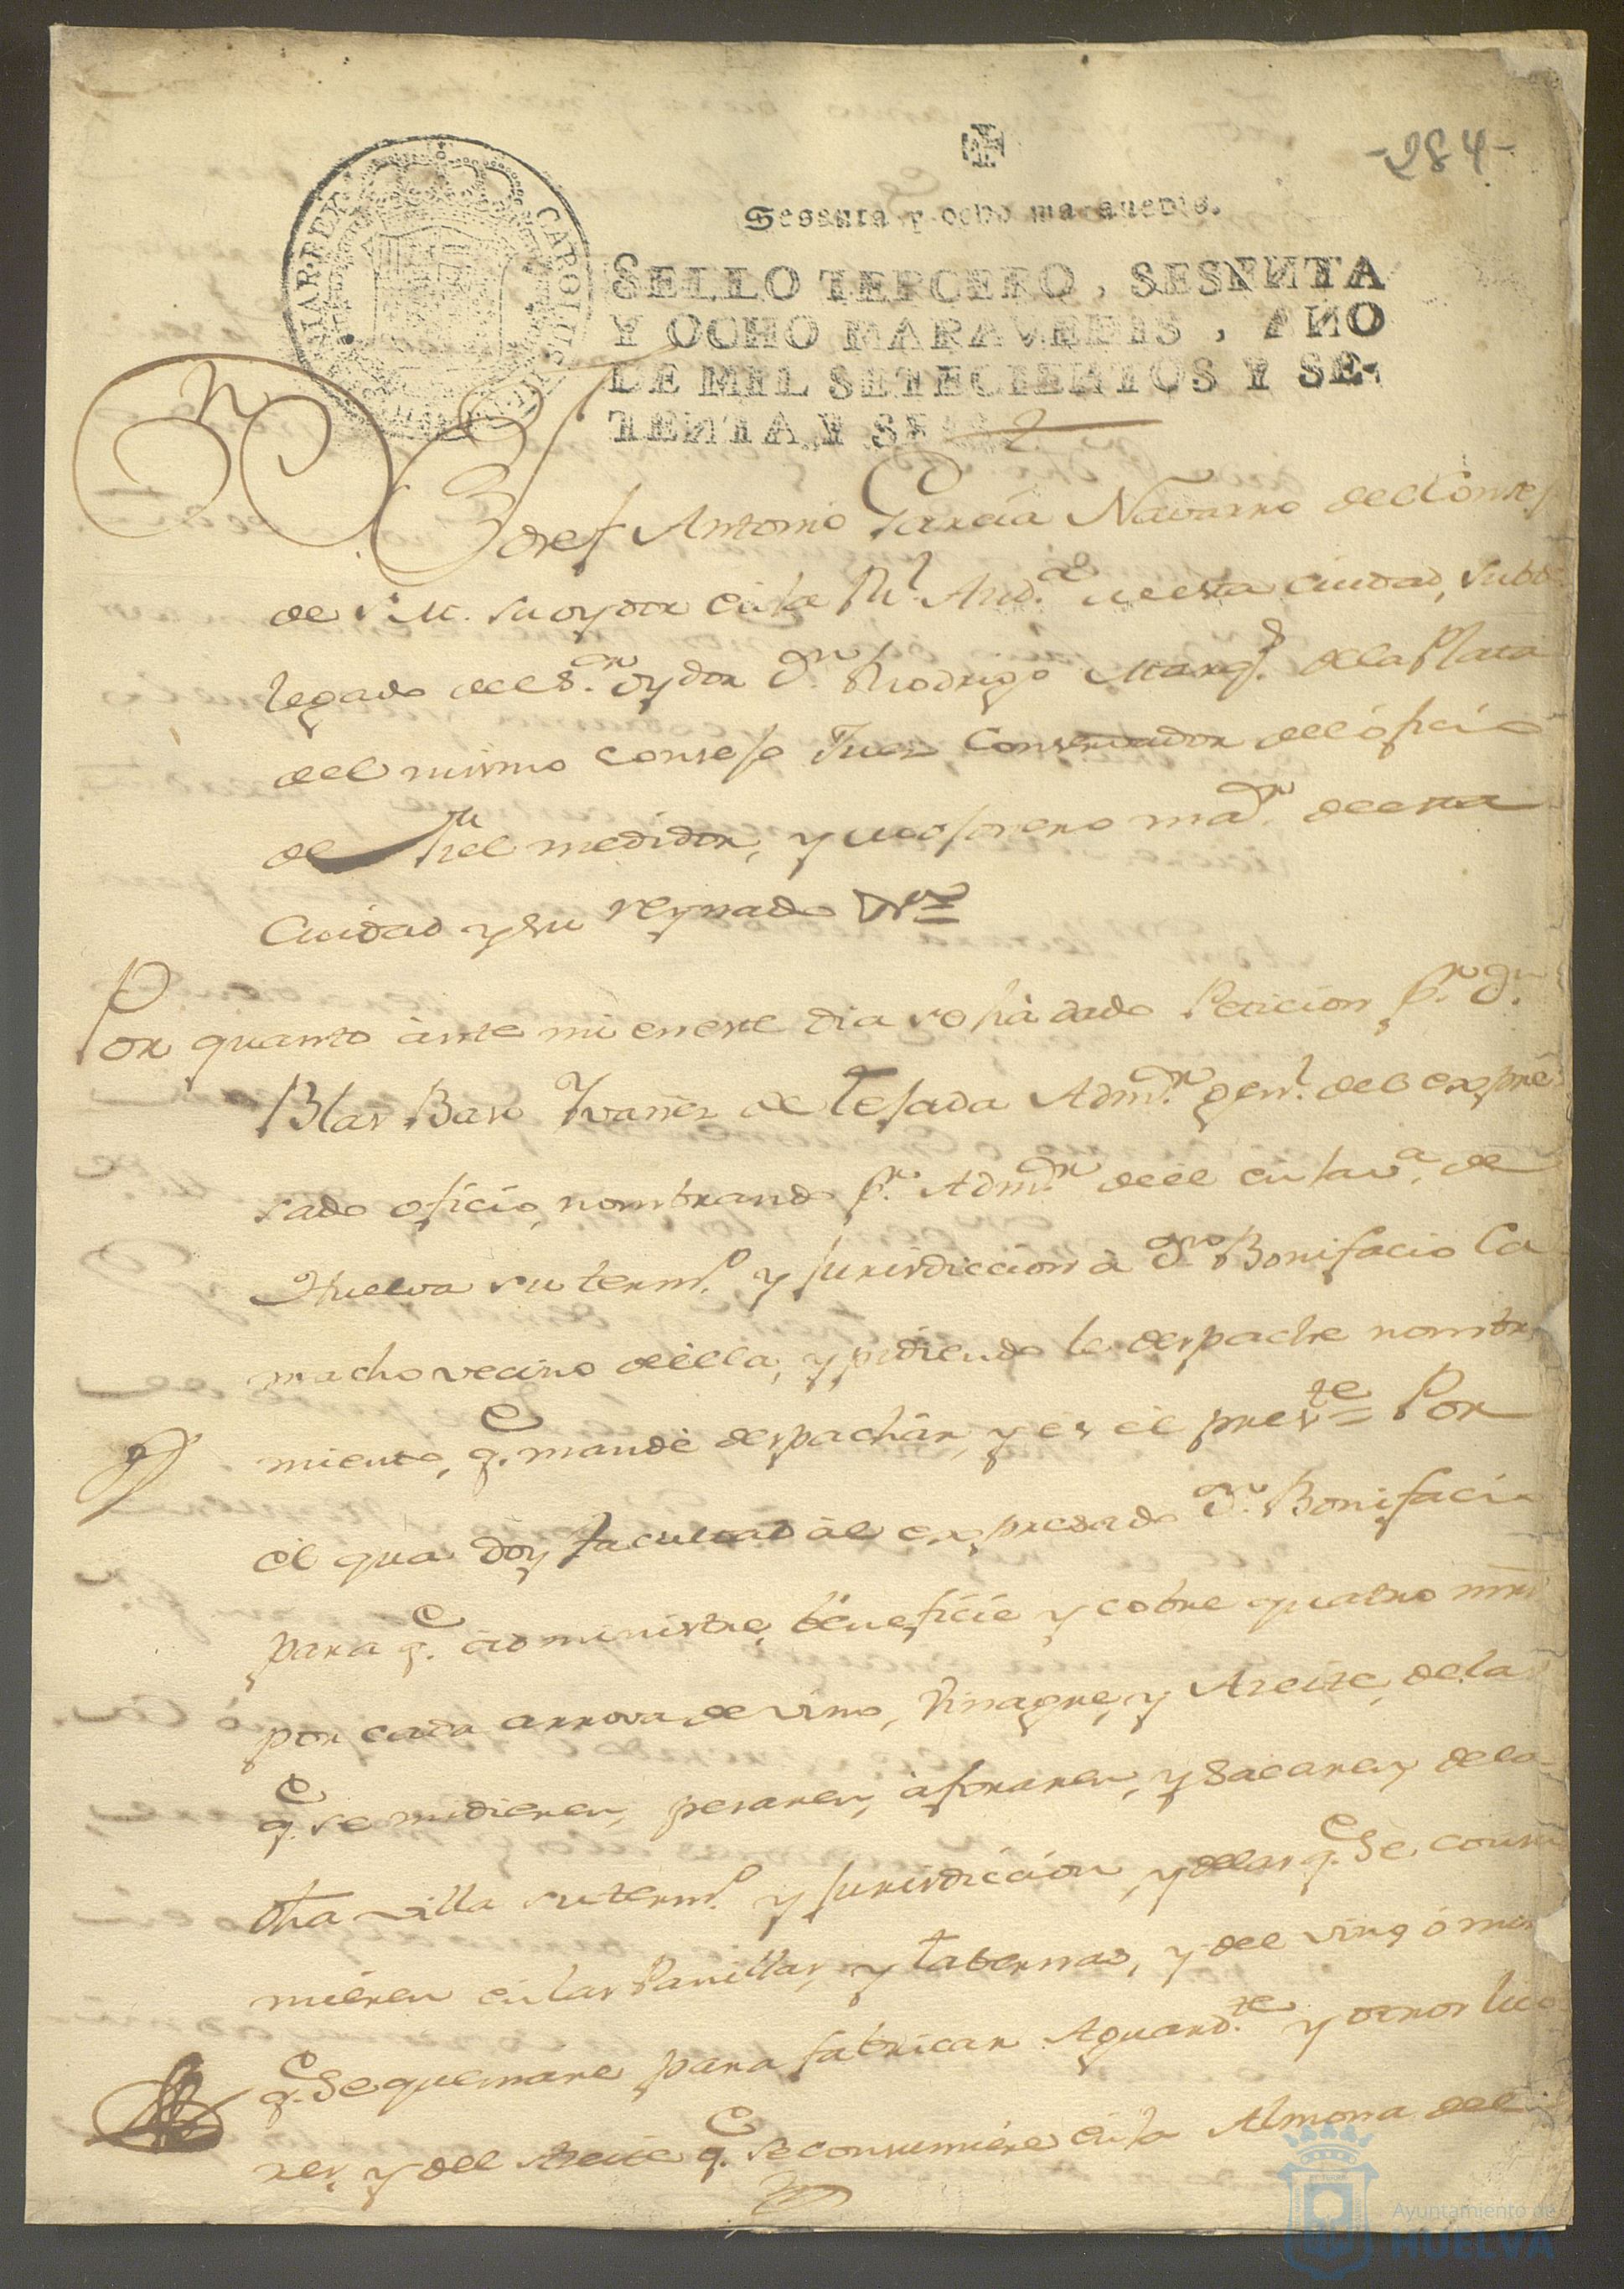 -284-
Sesenta y ocho marauedis.
SELLO TERCERO, SESENTA
Y OCHO MARAVEDIS, AÑO
DE MIL SETECIENTOS Y SE-
TENTA Y SEIS
CAROLUS III
HIAR·REX
Dn Josef Antonio Garcia Navarro del Consejo
de S.M. su oydor en la Rl. Audª de esta Ciudad, subde
legado del Sor. oydor Dn. Rodrigo Marqs. de la Plata
del mismo Consejo Juez Conservador del oficio
de fiel medidor, y mojonero mor. de esta
Ciudad y su reynado
Por quanto ante mi en este dia se há dado Peticion pr. Dn.
Blas Baso Yvañez de Tejada Admor. genl. del expre
sado oficio, nombrando pr. Admor. de él en la vª. de
Huelva su termo. y jurisdiccion á Dn. Bonifacio Ca
macho vecino de ella, y pidiendo le despache nombra
miento, qe. mandé despachar, y es el preste = Por
el qua doy facultad al expresado Dn. Bonifacio
para qe. administre, beneficie y cobre quatro mrs
por cada arrova de vino, Vinagre, y Azeite, de las
qe. se midieren, pesaren, aforaren, y sacaren, de la
dha villa su termo. y jurisdiccion, y de las qe. se consu
mieren en las Panillas, y tabernas, y del vino ó mos
qe. se quemare para fabricar Aguardte. y otros lico
res, y del Azeite qe. se consumiere en la Almona del
Ayuntamiento de
HUELVA